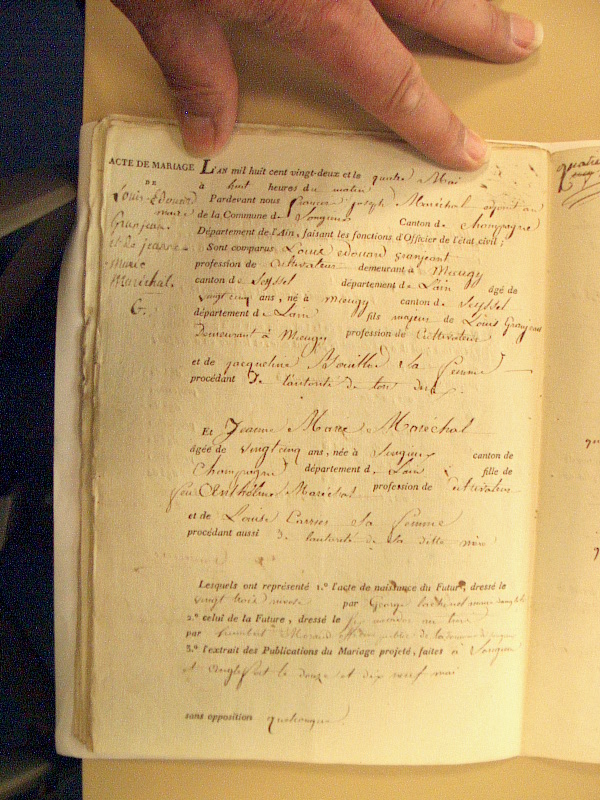 ACTE DE MARIAGE
DE
Louis Edouard
Granjean
et de jeanne
Marie
Maréchal.
L'AN mil huit cent vingt-deux et le quatre Mai
à huit heures du matin
Pardevant nous françois joseph Maréchal adjoint au
maire de la Commune de Songieu Canton de Champagne
Département de l'Ain, faisant les fonctions d'Officier de l'état civil;
Sont comparus Louis edouard granjeant
profession de Cultivateur demeurant à Mieugy
canton de Seyssel département de Lain âgé de
vingt cinq ans, né à mieugy canton de Seyssel
département de Lain fils majeur de Louis Granjean
Demeurant à Mieugy profession de Cultivateur
et de jacqueline Bouillu sa femme
procédant De l'autorité de tout deux
Et Jeanne Marie Maréchal
âgée de vingt cinq ans, née à Songieux canton de
Champagne département de Lain fille de
feu Enthelme Maréchal profession de Cultivateur
et de Louise Carrus sa femme
procédant aussi de l'autorité de sa ditte mère
Lesquels ont représenté 1.º l'acte de naissance du Futur, dressé le
vingt trois nivose par George
2.º celui de la Future, dressé le
par officier public de la commune de
3.º l'extrait des Publications du Mariage projeté, faites à Songieu
et le douze et dix neuf mai
sans opposition quelconque.
quatre